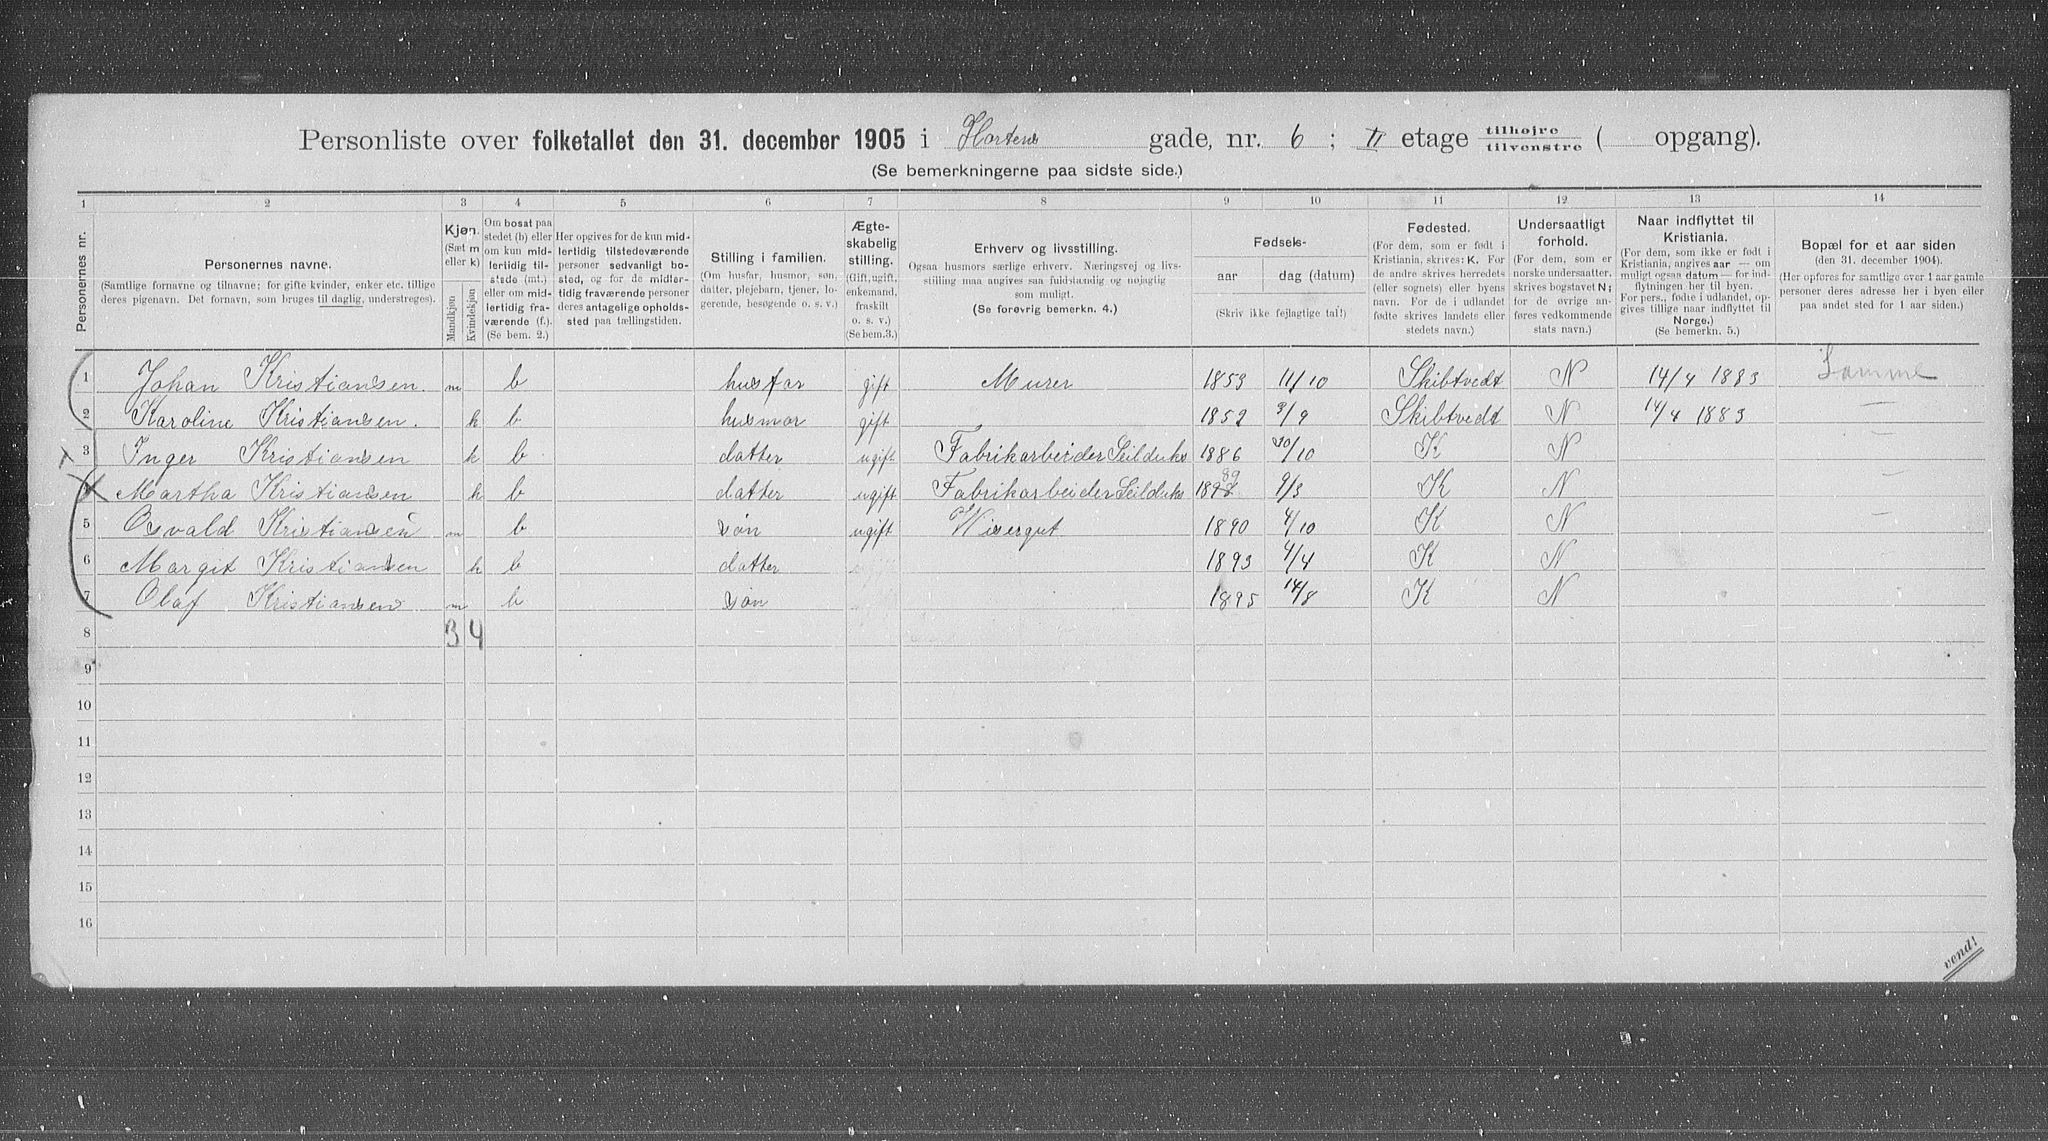 Personliste over folketallet den 31. december 1905 i Hortens gade, nr. 6; II etage tilhøjre tilvenstre ( opgang).
(Se bemerkningerne paa sidste side.)
1 2 3 4 5 6 7 8 9 10 11 12 13 14
Personernes nr.
Personernes navne.
(Samtlige fornavne og tilnavne; for gifte kvinder, enker etc. tillige
deres pigenavn. Det fornavn, som bruges til daglig, understreges).
Kjøn.
(Sæt m
eller k)
Mandkjøn
Kvindekjøn
Om bosat paa
stedet (b) eller
om kun mid-
lertidig til-
stede (mt.)
eller om mid-
lertidig fra-
værende (f.).
(Se bem. 2.)
Her opgives for de kun mid-
lertidig tilstedeværende
personer sedvanligt bo-
sted, og for de midler-
tidig fraværende personer
deres antagelige opholds-
sted paa tællingstiden.
Stilling i familien.
(Om husfar, husmor, søn,
datter, plejebarn, tjener, lo-
gerende, besøgende o. s. v.)
Ægte-
skabelig
stilling.
(Gift, ugift,
enkemand,
fraskilt
o. s. v.)
(Se bem.3.)
Erhverv og livsstilling.
Ogsaa husmors særlige erhverv. Næringsvej og livs-
stilling maa angives saa fuldstændig og nøjagtig
som muligt.
(Se forøvrig bemerkn. 4.)
Fødsels-
aar dag (datum)
(Skriv ikke fejlagtige tal!)
Fødested.
(For dem, som er født i
Kristiania, skrives: K. For
de andre skrives herredets
(eller sognets) eller byens
navn. For de i udlandet
fødte skrives landets eller
stedets navn.)
Undersaatligt
forhold.
(For dem, som er
norske undersaatter,
skrives bogstavet N;
for de øvrige an-
føres vedkommende
stats navn.)
Naar indflyttet til
Kristiania.
(For dem, som ikke er født i
Kristiania, angives aar — om
muligt ogsaa datum — for ind-
flytningen her til byen.
For pers., fødte i udlandet, op-
gives tillige naar indflyttet til
Norge.)
(Se bemerkn. 5.)
Bopæl for et aar siden
(den 31. december 1904).
(Her opføres for samtlige over 1 aar gamle
personer deres adresse her i byen eller
paa andet sted for 1 aar siden.)
1 Johan Kristiansen. m b husfar gift Murer 1853 11/10 Skibtvedt N 14/4 1883 Samme
2 Karoline Kristiansen. k b husmor gift 1852 3/9 Skibtvedt N 14/4 1883 —
3 Inger Kristiansen k b datter ugift Fabrikarbeider Seilduks 1886 20/10 K N —
4 Martha Kristiansen k b datter ugift Fabrikarbeider Seilduks 1889 9/3 K N —
5 Osvald Kristiansen m b søn ugift Visergut 1890 4/10 K N —
6 Margit Kristiansen k b datter 1893 4/4 K N
7 Olaf Kristiansen m b søn 1895 14/8 K N
8 3 4
9
10
11
12
13
14
15
16
vend!